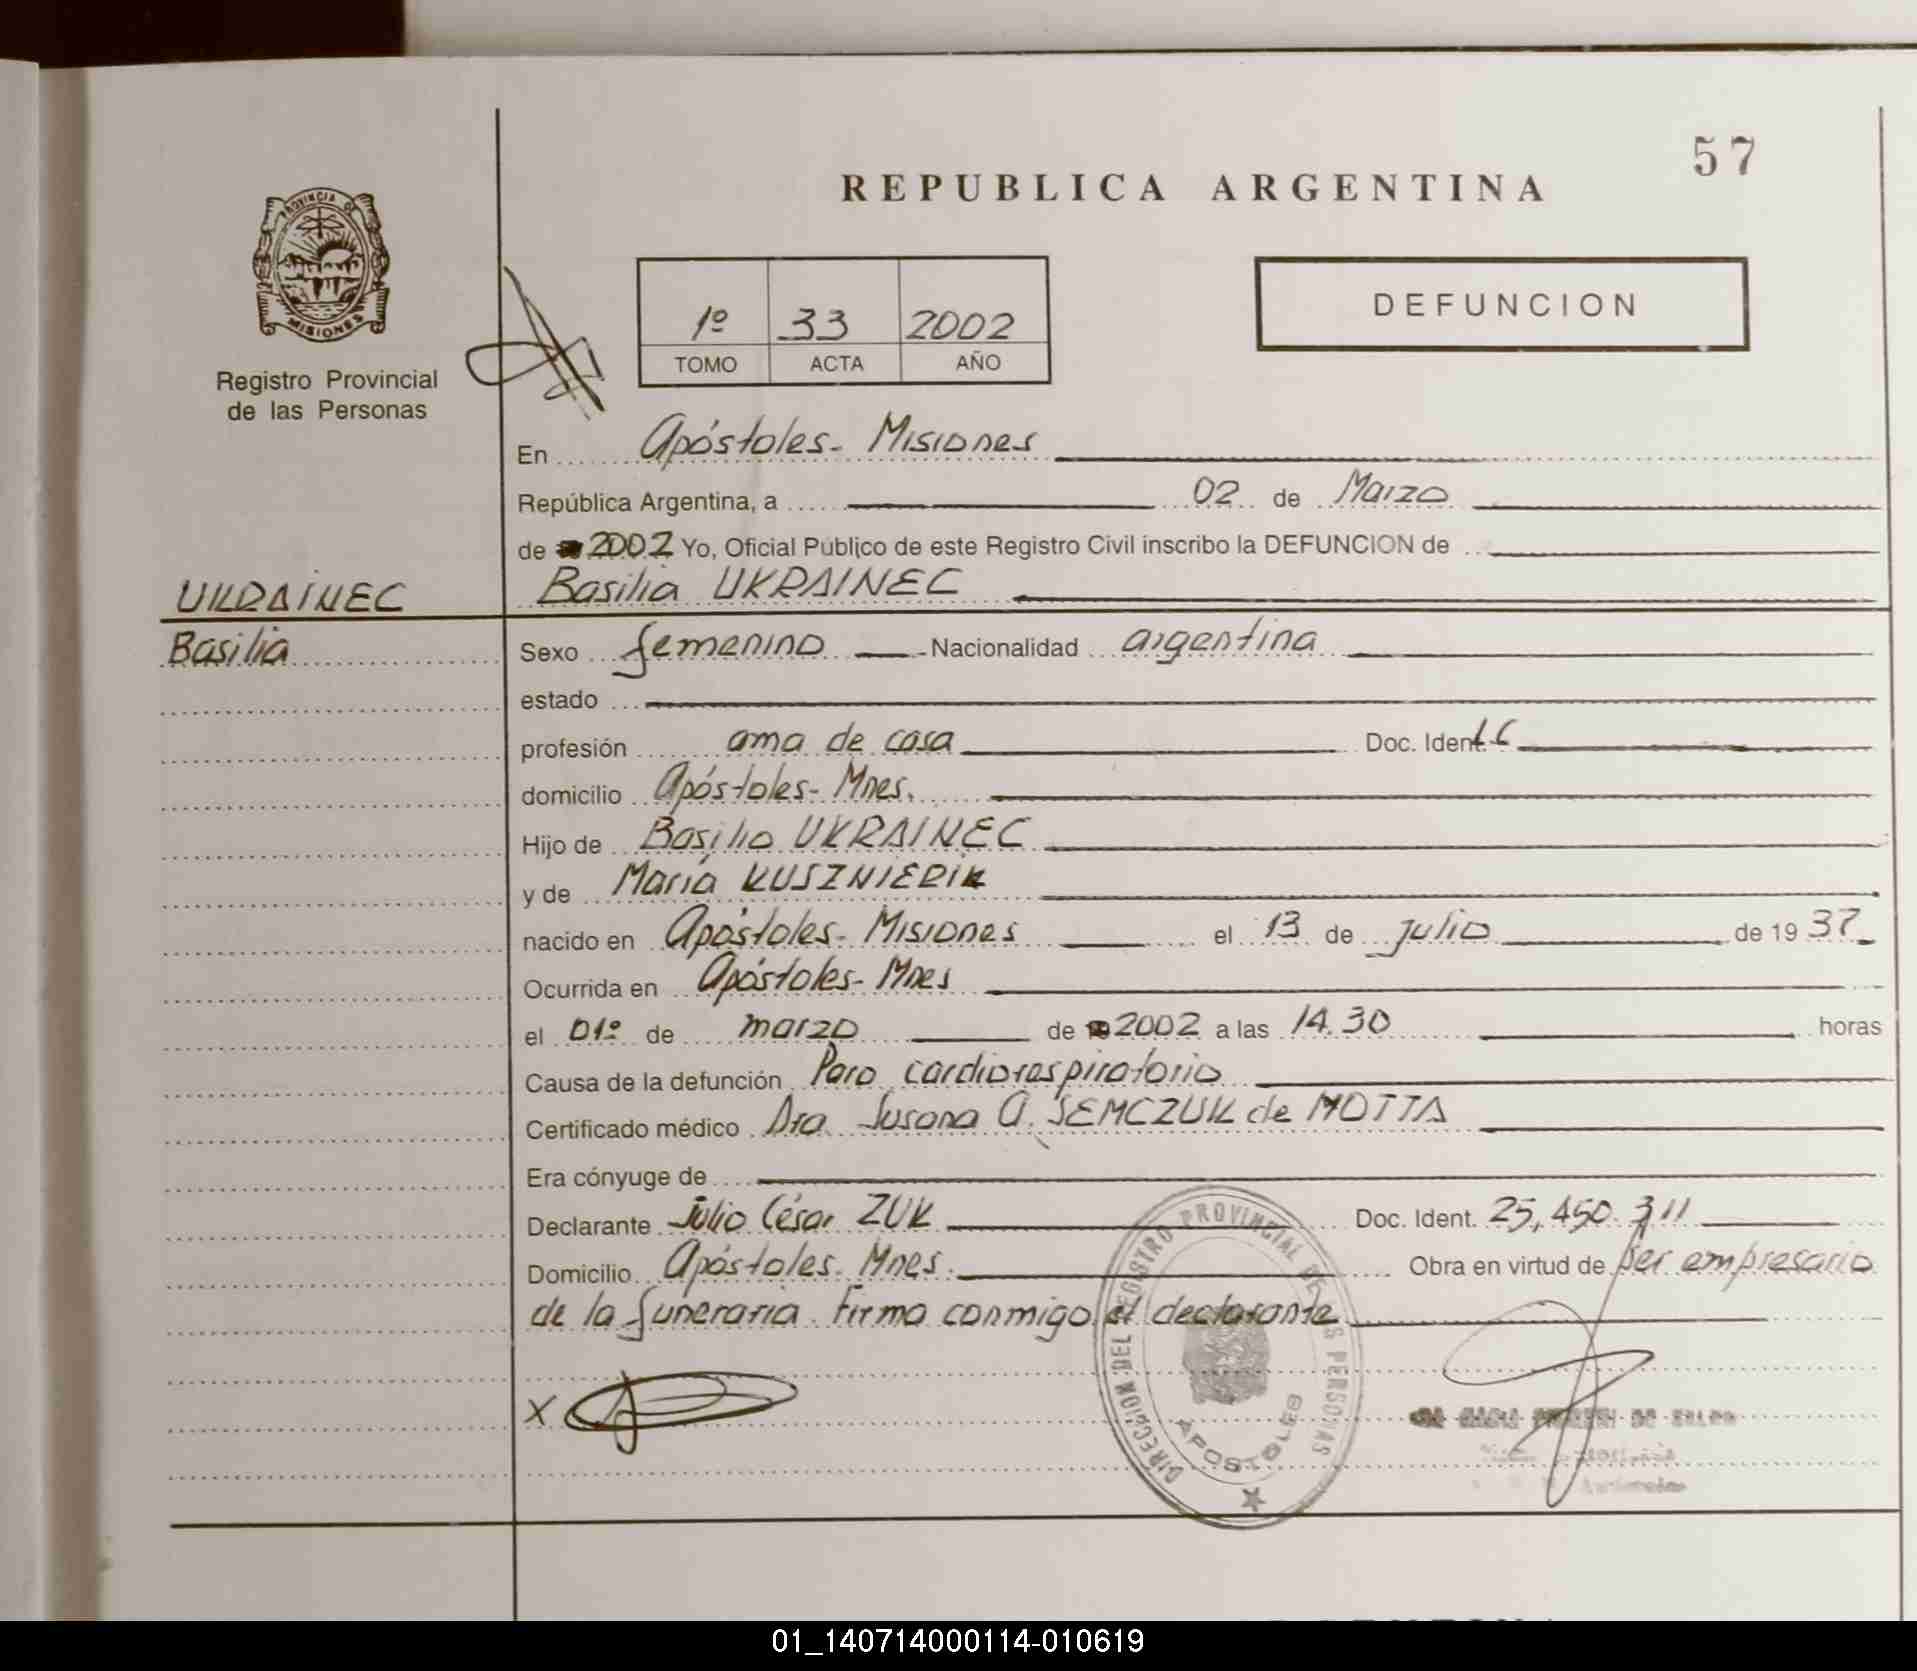 57
REPUBLICA ARGENTINA
PROVINCIA DE
MISIONES
Registro Provincial
de las Personas
DEFUNCION
1º 33 2002
TOMO ACTA AÑO
En Apóstoles - Misiones
República Argentina, a 02 de Marzo
de 2002 Yo, Oficial Público de este Registro Civil inscribo la DEFUNCION de
UKRAINEC
Basilia UKRAINEC
Basilia
Sexo femenino Nacionalidad argentina
estado
profesión ama de casa Doc. Ident. LC
domicilio Apóstoles - Mnes.
Hijo de Basilio UKRAINEC
y de María KUSZNIERIK
nacido en Apóstoles - Misiones el 13 de julio de 1937
Ocurrida en Apóstoles - Mnes
el 01º de marzo de 2002 a las 14.30 horas
Causa de la defunción Paro cardiorespiratorio
Certificado médico Dra Susana A. SEMCZUK de MOTTA
Era cónyuge de
Declarante Julio César ZUK Doc. Ident. 25,450.311
Domicilio Apóstoles. Mnes. Obra en virtud de ser empresario
de la funeraria. Firma conmigo el declarante
X
DIRECCION DEL REGISTRO PROVINCIAL DE LAS PERSONAS
APOSTOLES
01_140714000114-010619